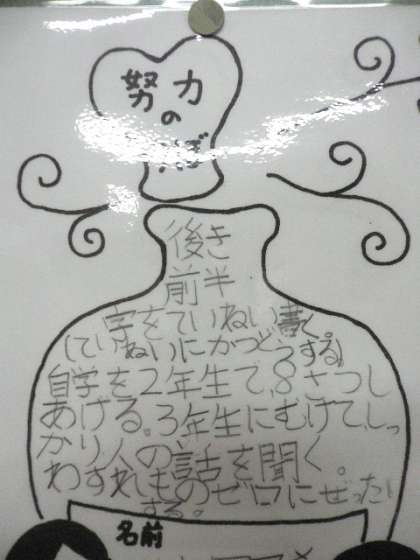 努力
の
つぼ
後き
前半
字をていねい書く。
(ていねいにかつどうする)
自学を2年生で、8さつし
あげる。3年生にむけてしっ
かり人の話を聞く。
わすれものゼロにぜったい
する。
名前